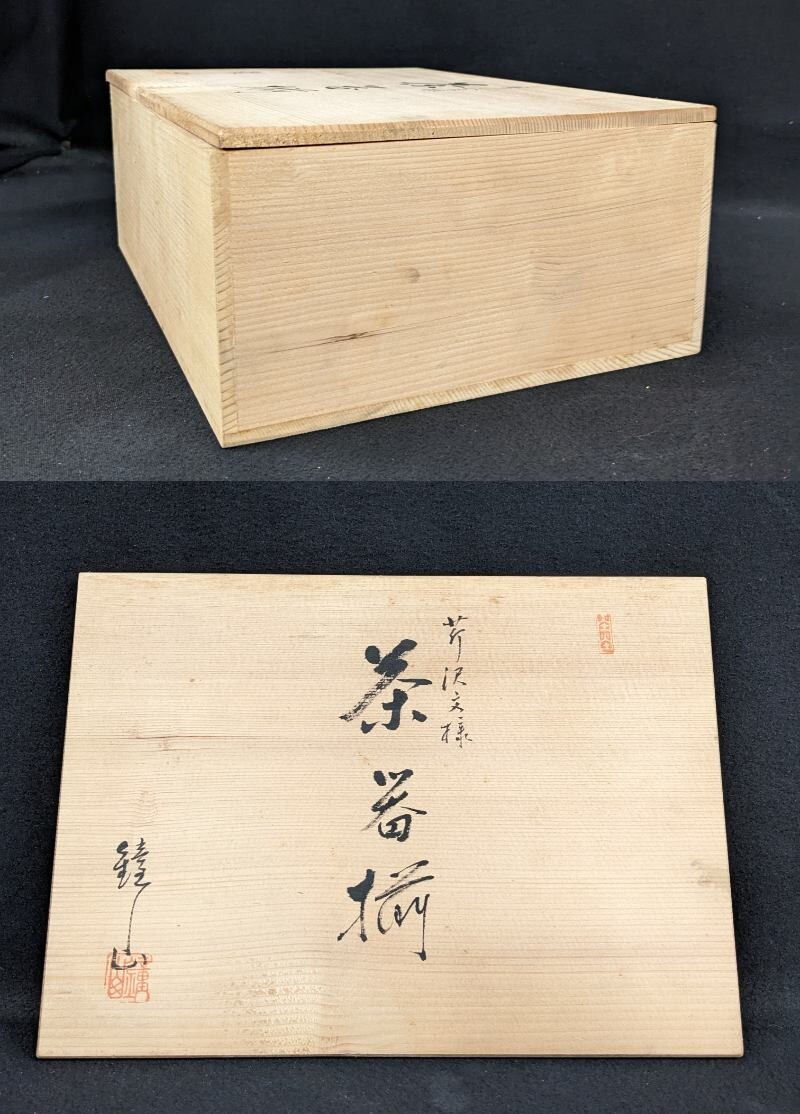 芹沢文様
茶器揃
鐘山